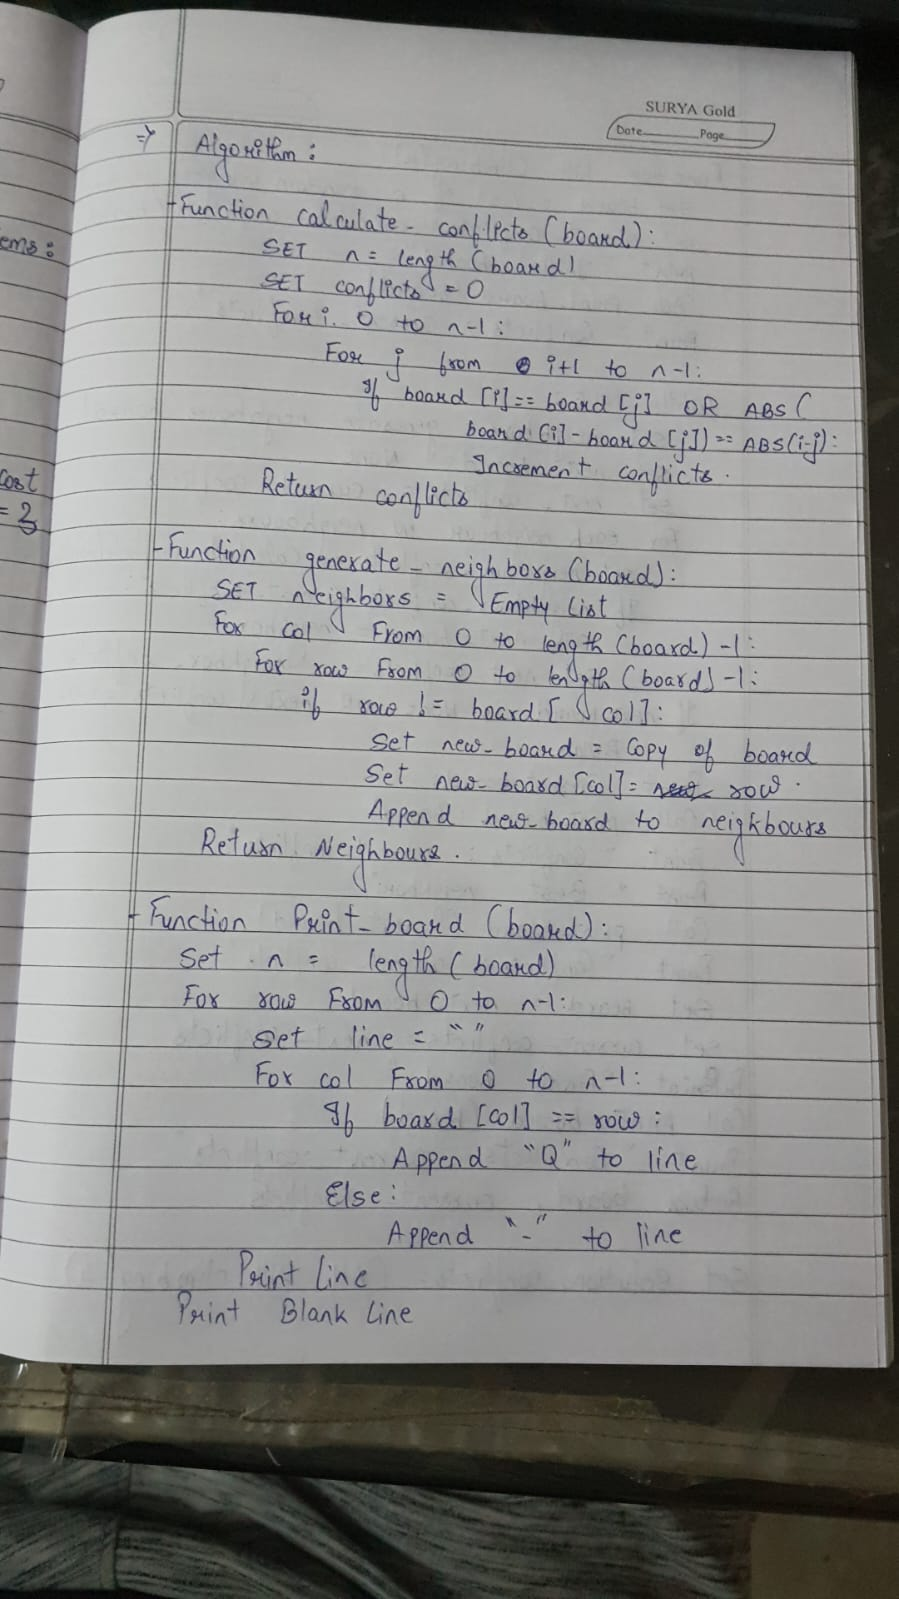 SURYA Gold
Date Page
ems:
cost
= 2
⇒ Algorithm:
- Function calculate - conflicts (board):
SET n = length (board)
SET conflicts = 0
For i. 0 to n-1:
For j from i+1 to n-1:
If board [i] == board [j] OR ABS (
board [i] - board [j]) == ABS(i-j):
Increment conflicts.
Return conflicts
- Function generate - neighbors (board):
SET neighbors = Empty List
For col From 0 to length (board) -1:
For row From 0 to length (board) -1:
if row != board [col]:
Set new-board = Copy of board
Set new-board [col] = row.
Append new-board to neighbours
Return Neighbours.
- Function Print - board (board):
Set n = length (board)
For row From 0 to n-1:
Set line = " "
For col From 0 to n-1:
If board [col] == row:
Append "Q" to line
Else:
Append "-" to line
Print Line
Print Blank Line